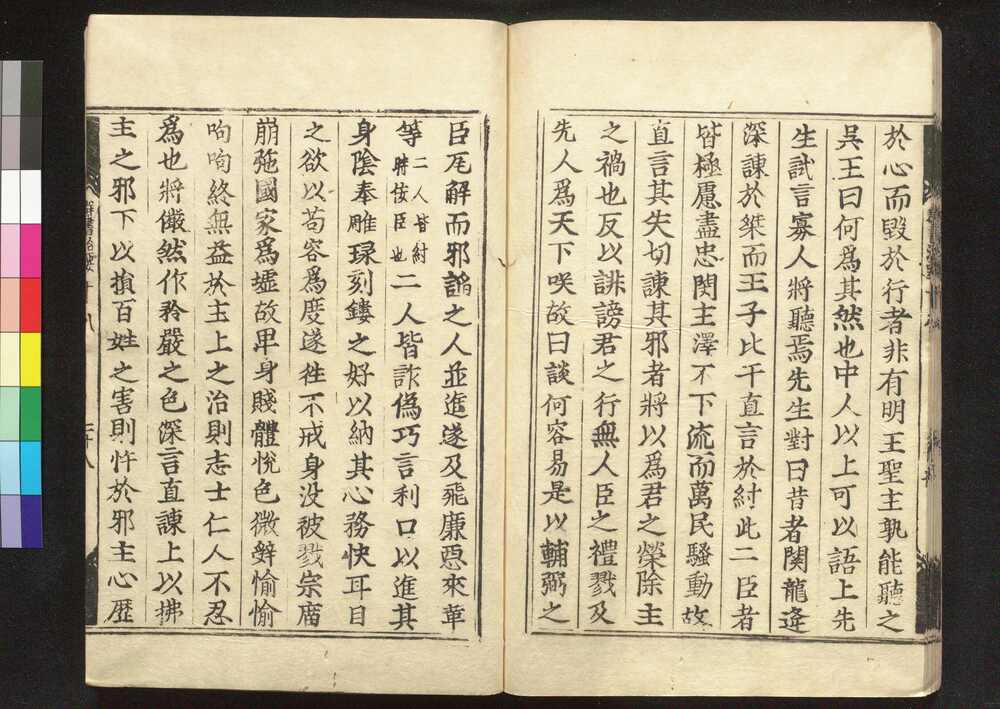 於心而毀於行者非有明王聖主孰能聽之
吳王曰何爲其然也中人以上可以語上先
生試言寡人將聽焉先生對曰昔者関龍逄
深諫於桀而王子比干直言於紂此二臣者
皆極慮盡忠閔主澤不下流而萬民騷動故
直言其失切諫其邪者將以爲君之榮除主
之禍也反以誹謗君之行無人臣之禮戮及
先人爲天下咲故曰談何容易是以輔弼之
臣瓦解而邪謟之人並進遂及飛廉惡來革
等二人皆紂時佞臣也二人皆詐僞巧言利口以進其
身陰奉雕琭刻鏤之好以納其心務快耳目
之欲以苟容爲度遂往不戒身没被戮宗廟
崩弛國家爲墟故卑身賤體悅色微辞愉愉
呴呴終無益於主上之治則志士仁人不忍
爲也將儼然作矜嚴之色深言直諫上以拂
主之邪下以損百姓之害則忤於邪主心歷
群書治要十八 二十八